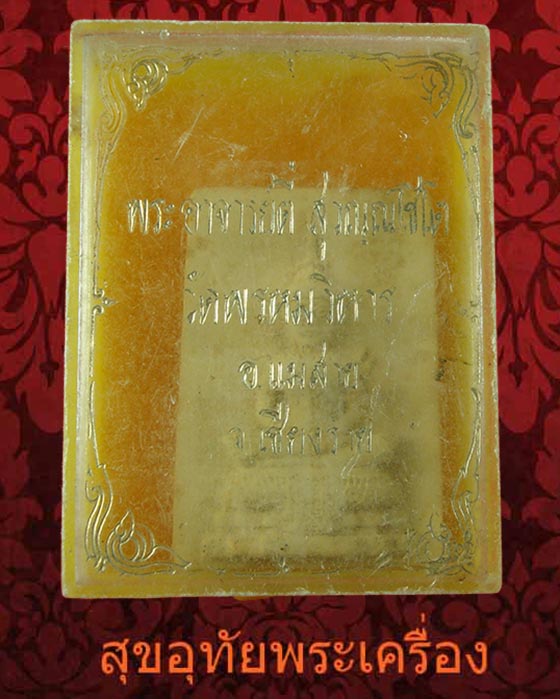 พระอาจารย์ตี๋ สุวณฺณโชโต
วัดพรหมวิหาร
อ.แม่สาย
จ.เชียงราย
สุขอุทัยพระเครื่อง